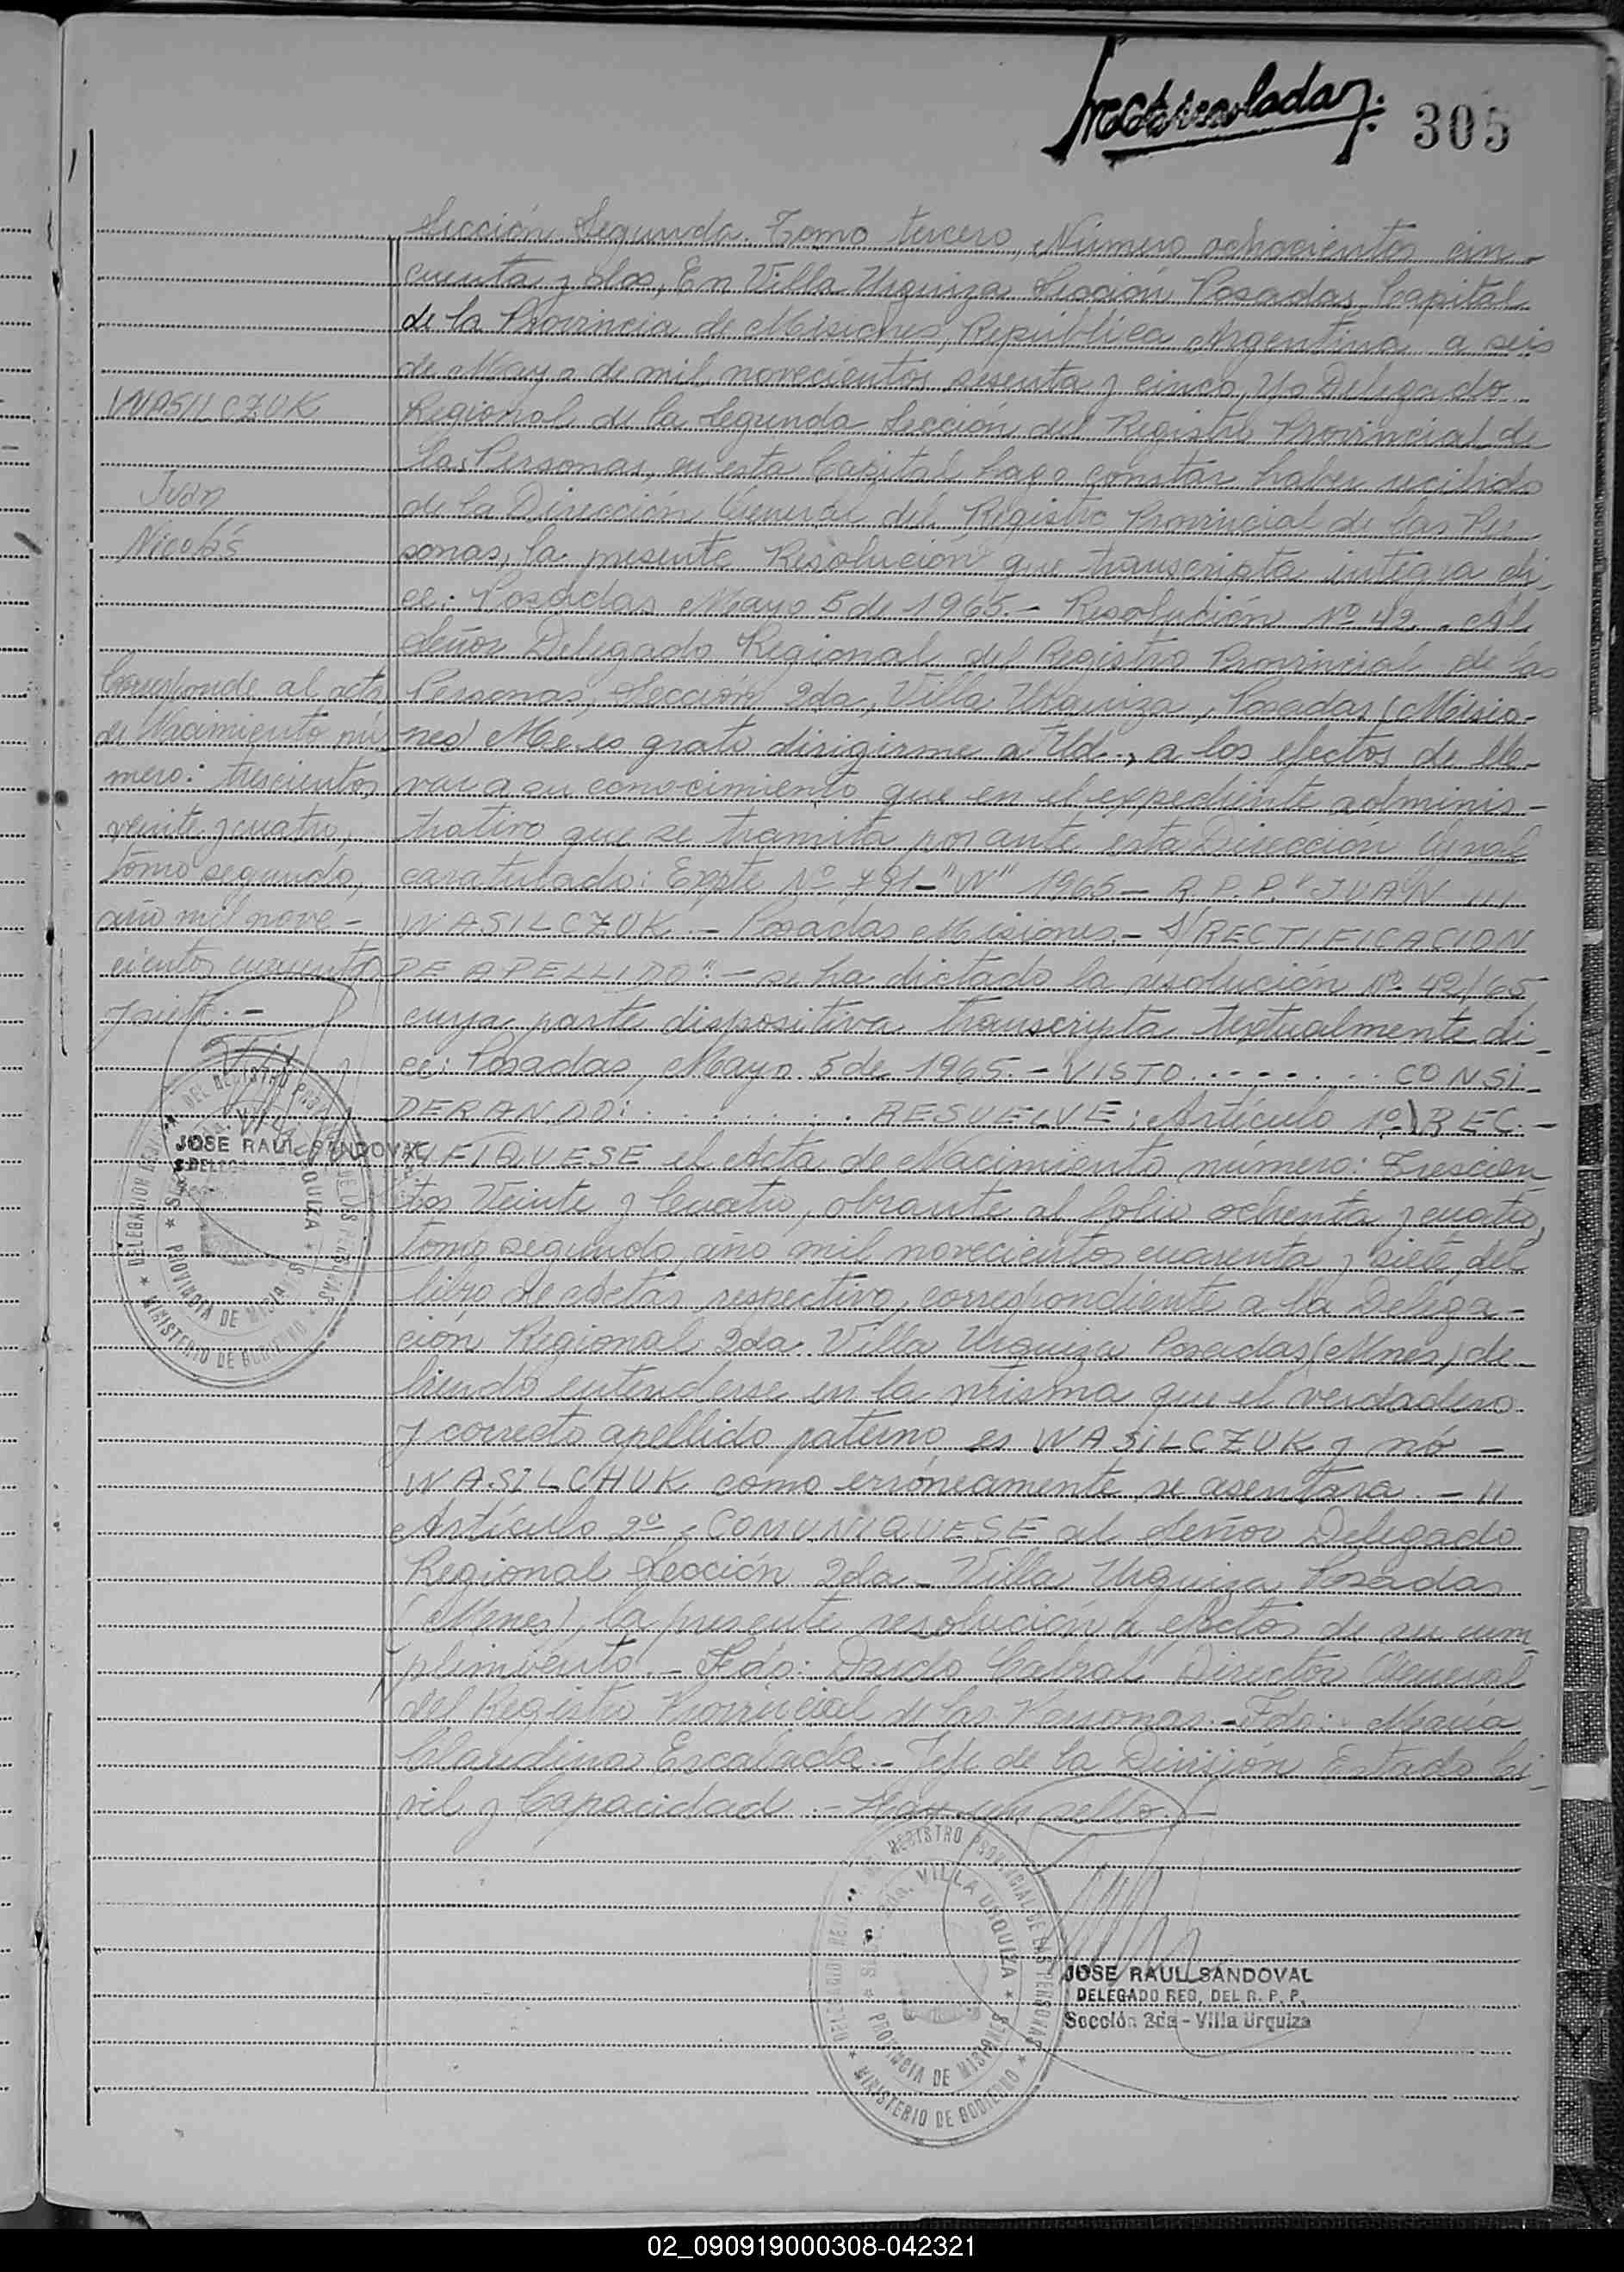 305
Sección Segunda. Tomo tercero, Número ochocientos cin-
cuenta y dos, En Villa Urquiza Sección Posadas, Capital
de la Provincia de Misiones, República Argentina a seis
de Mayo de mil novecientos sesenta y cinco, Yo Delegado
Regional de la Segunda Sección del Registro Provincial de
las Personas, en esta Capital hago constar haber recibido
de la Dirección General del Registro Provincial de las Per-
sonas, la presente Resolución que transcripta integra di-
ce: Posadas Mayo 5 de 1965.- Resolución Nº 42.- Al
Señor Delegado Regional del Registro Provincial de las
Personas, Sección 2da, Villa Urquiza, Posadas (Misio-
nes) Me es grato dirigirme a Ud., a los efectos de lle-
var a su conocimiento que en el expediente adminis-
trativo que se tramita por ante esta Dirección Gral
caratulado: Expte Nº 791-"W" 1965- R.P.P. "JUAN
WASILCZUK.- Posadas Misiones.- S/RECTIFICACION
DE APELLIDO".- se ha dictado la resolución Nº 42/65
cuya parte dispositiva transcripta textualmente di-
ce: Posadas, Mayo 5 de 1965.- VISTO........ CONSI-
DERANDO:.......... RESUELVE: Artículo 1º) REC.-
TIFIQUESE el Acta de Nacimiento número: Trescien-
tos Veinte y Cuatro, obrante al folio ochenta y cuatro,
tomo segundo, año mil novecientos cuarenta y siete, del
libro de Actas respectivo, correspondiente a la Delega-
ción Regional 2da. Villa Urquiza Posadas (Mnes) de-
biendo entenderse en la misma que el verdadero
y correcto apellido paterno es WASILCZUK y nó -
WASILCHUK como erróneamente se asentara.- "
Artículo 2º.- COMUNIQUESE al Señor Delegado
Regional Sección 2da - Villa Urquiza Posadas
(Mnes), la presente resolución a efectos de su cum-
plimiento.- Fdo: Dardo Cabral Director General
del Registro Provincial de las Personas.- Fdo: María
Claudina Escalada.- Jefe de la División Estado Ci-
vil y Capacidad.- Hay un sello.-
WASILCZUK
Juan
Nicolás
Corresponde al acta
de Nacimiento nú-
mero: trescientos
veinte y cuatro,
tomo segundo,
año mil nove-
cientos cuarenta
y siete.-
JOSE RAUL SANDOVAL
DELEGACION REGIONAL DEL REGISTRO PROVINCIAL DE LAS PERSONAS
PROVINCIA DE MISIONES
MINISTERIO DE GOBIERNO
REGISTRO PROVINCIAL DE LAS PERSONAS
2da. VILLA URQUIZA
PROVINCIA DE MISIONES
MINISTERIO DE GOBIERNO
JOSE RAUL SANDOVAL
DELEGADO REG. DEL R. P. P.
Sección 2da - Villa Urquiza
02_090919000308-042321